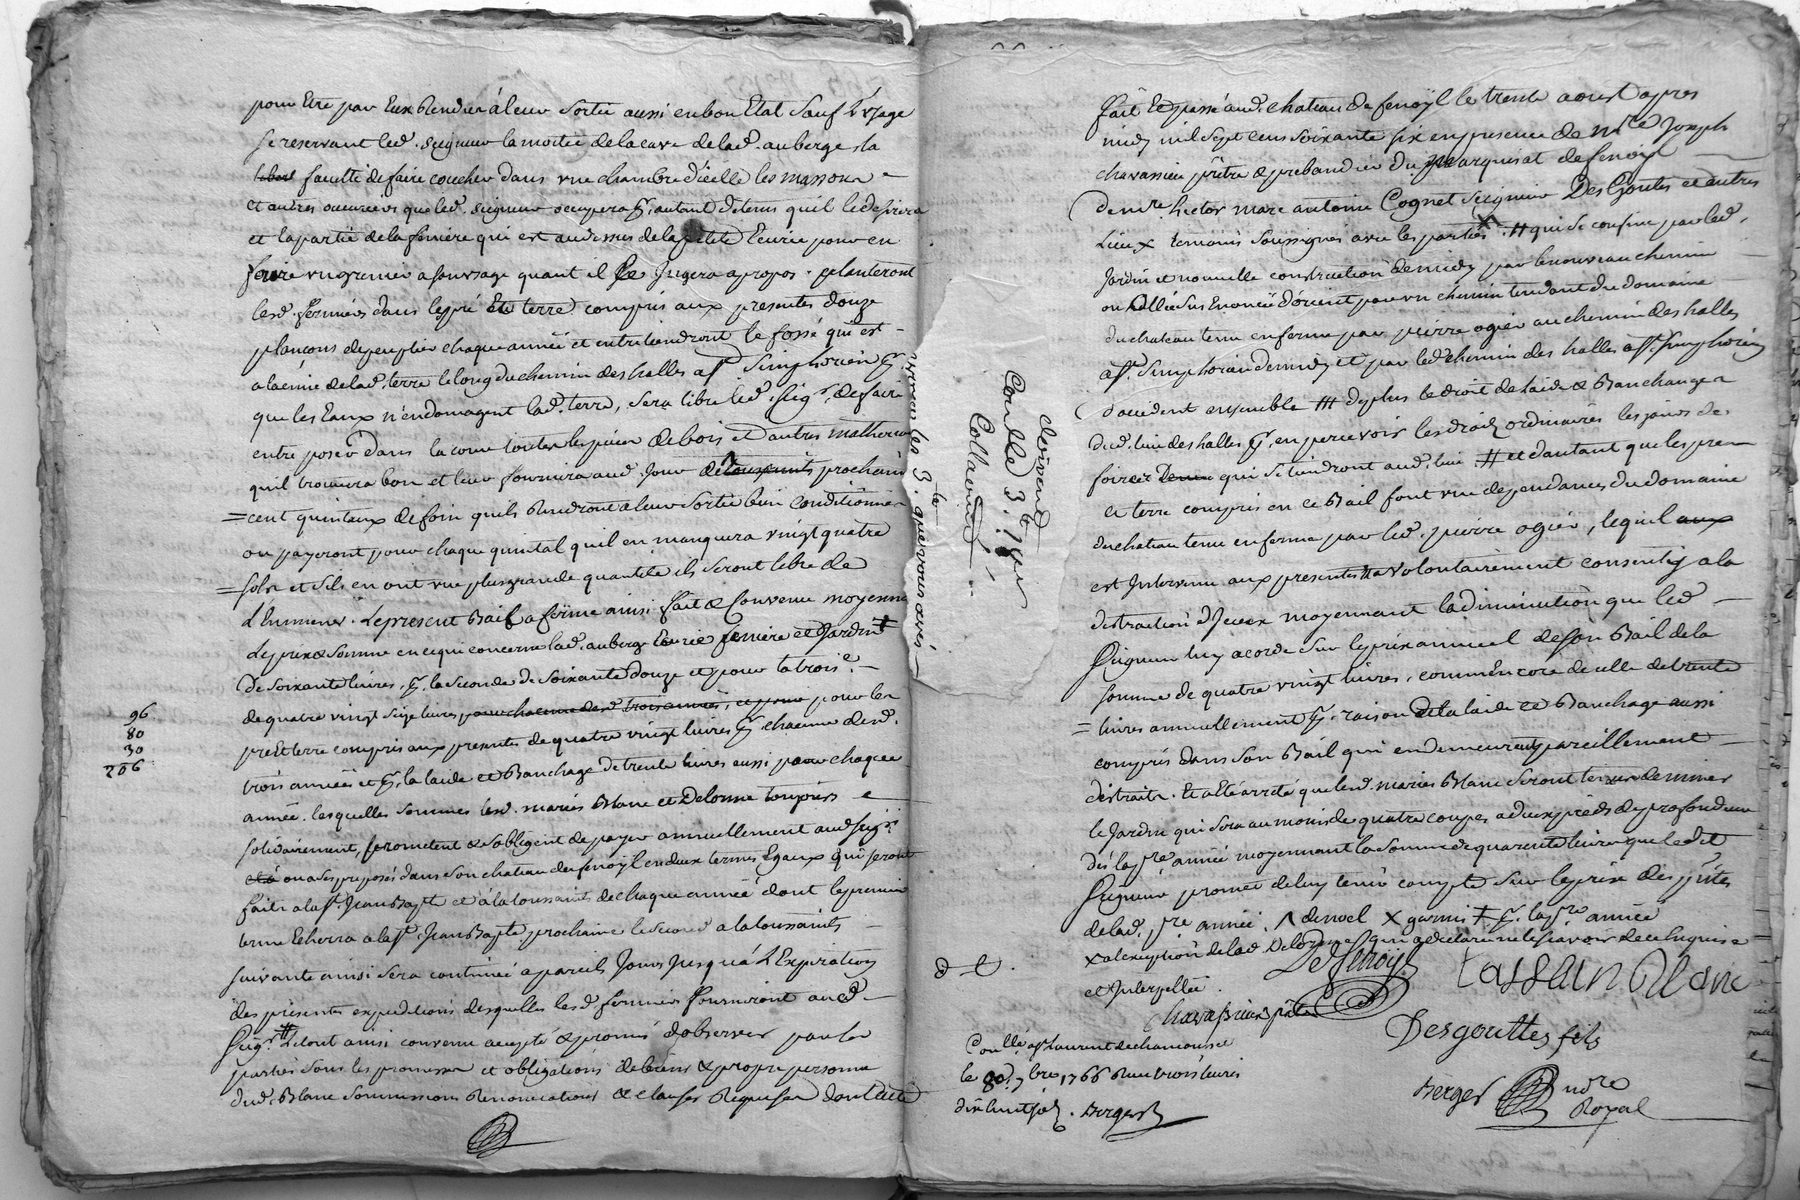 pour Etre par Eux Rendue à leur sortie aussi en bon Etat sauf L'usage
se reservant led. seigneur la moitié de la cave de lad. auberge la
faculté de faire coucher dans une chambre d'icelle les massons
et autres ouvriers que led. seigneur occupera autant de tems qu'il le desirera
et la partie de la feniere qui est au dessus de la petite Ecurie pour en
faire un grenier a fourrage quant il le Jugera apropos. planteront
lesd. fermiers dans le pré et terre compris aux presentes douze
plançons de peuplier chaque année et entretiendront le fossé qui est
a la cime de lad. terre le long du chemin des halles a st. Simphorien
que les Eaux n'endomagent lad. terre, sera libre led. seigr. de faire
entreposer dans la cour toutes les pieces de bois et d'autres matheriaux
qu'il trouvera bon et leur fournira aud. Jour de toussaints prochain
cent quintaux de foin qu'ils Rendront a leur sortie bien conditionnés
ou payeront pour chaque quintal qu'il en manquera vingt quatre
sols et s'ils en ont une plus grande quantité ils seront libre de
L'Emmener. Le present Bail a ferme ainsi fait & convenu moyennant
Le prix & somme en ce qui concerne lad. auberge Ecurie feniere et Jardin
de soixante livres, la seconde de soixante douze et pour la troise.
de quatre vingt seize livres pour chacune desd. trois années, et pour pour les
pré et terre compris aux presentes de quatre vingt livres chacune desd.
trois années et la laide et Banchage de trente livres aussi pour chaque
96
80
30
206
année. lesquelles sommes lesd. mariés Blanc et Delorme toujours
solidairement, promettent & s'obligent de payer annuellement aud. seigr.
ou a ses preposés dans son chateau de fenoÿl en deux termes Egaux qui seront
faits a la st. Jean Bapte et à la toussaints de chaque année dont le premier
terme Echerra a la st. Jean Bapte prochaine le second a la toussaints
suivante ainsi sera continué a pareils Jours Jusqu'à L'Expiration
des presentes expeditions desquelles lesd. fermiers fourniront aud.
seigr. # Letout ainsi convenu accepté & promis d'observer par les
parties sous les promesses et obligations de biens & propre personne
dud. Blanc soumissions Renonciations & clauses Requises dont acte
Controlle 3.# 18s
Collationné
fait et passé aud. chateau de fenoÿl le trente aoust apres
midy mil sept cens soixante six en presence de mre Joseph
chavassieu prêtre & prebandier du Marquisat de fenoÿl
de mre. hector marc antoine Cognet seigneur Des Goutes et autres
Lieux temoins soussignés avec les parties. # qui se confine par led.
Jardin et nouvelle construction de midy par le nouveau chemin
ou allée sus Enoncé d'orient par un chemin tendant du domaine
du chateau tenu en ferme par pierre ogier au chemin des halles
a st. Simphorien de midy et par led. chemin des halles a st. simphorien
d'occident ensemble # de plus le droit de laide & Banchage
dud. lieu des halles en percevoir les droits ordinaires les jours de
foires qui se tiendront aud. lieu # et d'autant que les pré
et terre compris en ce Bail font une dependance du domaine
du chateau tenu en ferme par led. pierre ogier, lequel
est Intervenu aux presentes a volontairement consenty a la
distraction d'Iceux moyennant la diminution que led.
seigneur luy acorde sur le prix annuel de son Bail de la
somme de quatre vingt livres, comm'Encore de celle de trente
livres annuellement raison de la laide et Banchage aussi
compris dans son Bail qui en demeurent pareillement
distraits. Et a Eté arreté que lesd. mariés Blanc seront tenus de miner
le Jardin qui sera au moins de quatre coupes a deux pieds de profondeur
dès la pre année moyennant la somme de quarente livres que ledit
seigneur promet de luy tenir compte sur le prix des ptes
de lad. pre année. ∧ de noel X garnis ‡ la pre année
X a l'exception de lad. Delorme qui a declaré ne le scavoir de ce Enquise
et Interpellée.
De fenoÿl Cassain Blanc
Chavassieu ptre
Desgouttes fils
Conllé. a st Laurent de chamousset
le 8. 7bre 1766 Reçu trois livres
dix huit sols. Berger
Berger nore
Royal